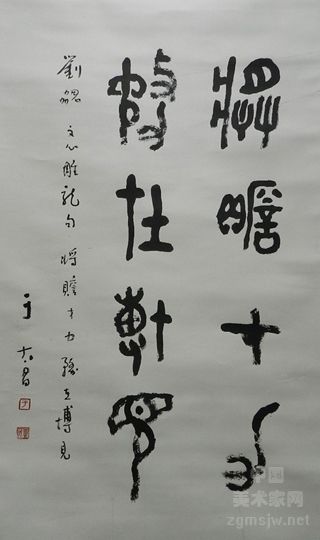 將贍才力
務在博見
劉勰文心雕龍句將贍才力務在博見
中国
美术家网
zgmsjw.net